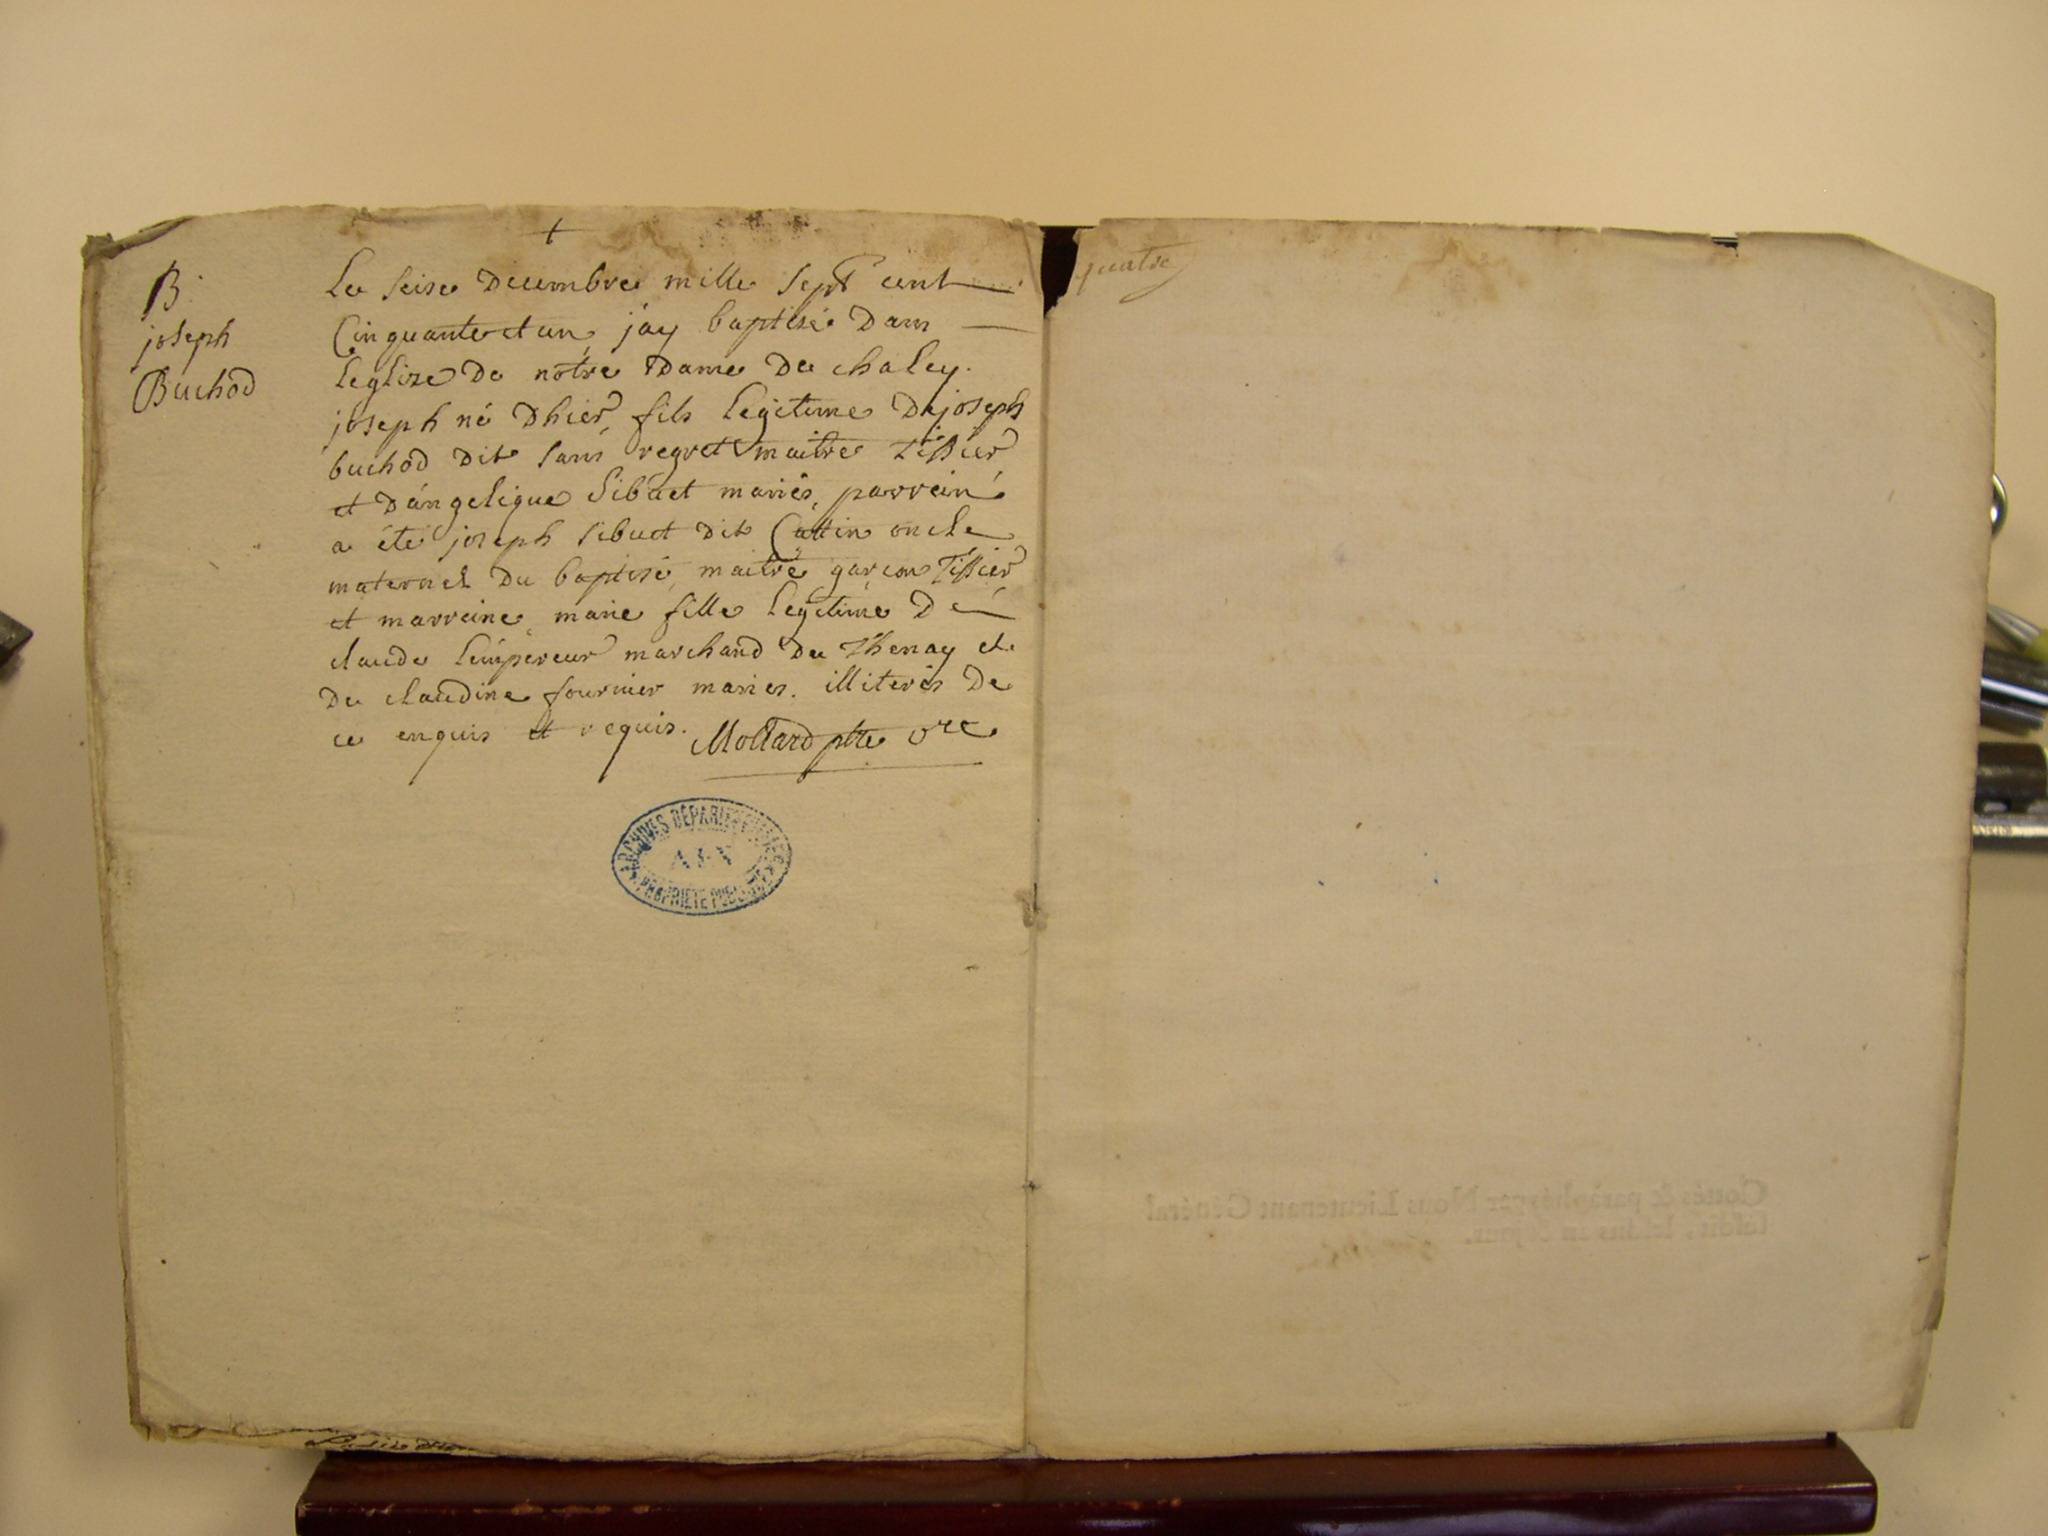 B.
joseph
Buchod
Le seise decembre mille sept cent
Cinquante et un, jay baptisé dans
leglize de notre Dame de chaley.
joseph né dhier, fils legitime de joseph
buchod dit sans regret maitre tissier
et dangelique Sibuet mariés, parrein
a été joseph sibuet dit Cattin oncle
maternel du baptisé, maitre garçon tissier
et marreine, marie fille legitime de
claude lempereur marchand de thenay et
de claudine fournier mariés. illiterés de
ce enquis et requis. Mollard ptre vre
ARCHIVES DÉPARTEMENTALES
AIN
PROPRIÉTÉ PUBLIQUE
quatre
Cottés & paraphés par Nous Lieutenant Général
susdit, lesdits an & jour.